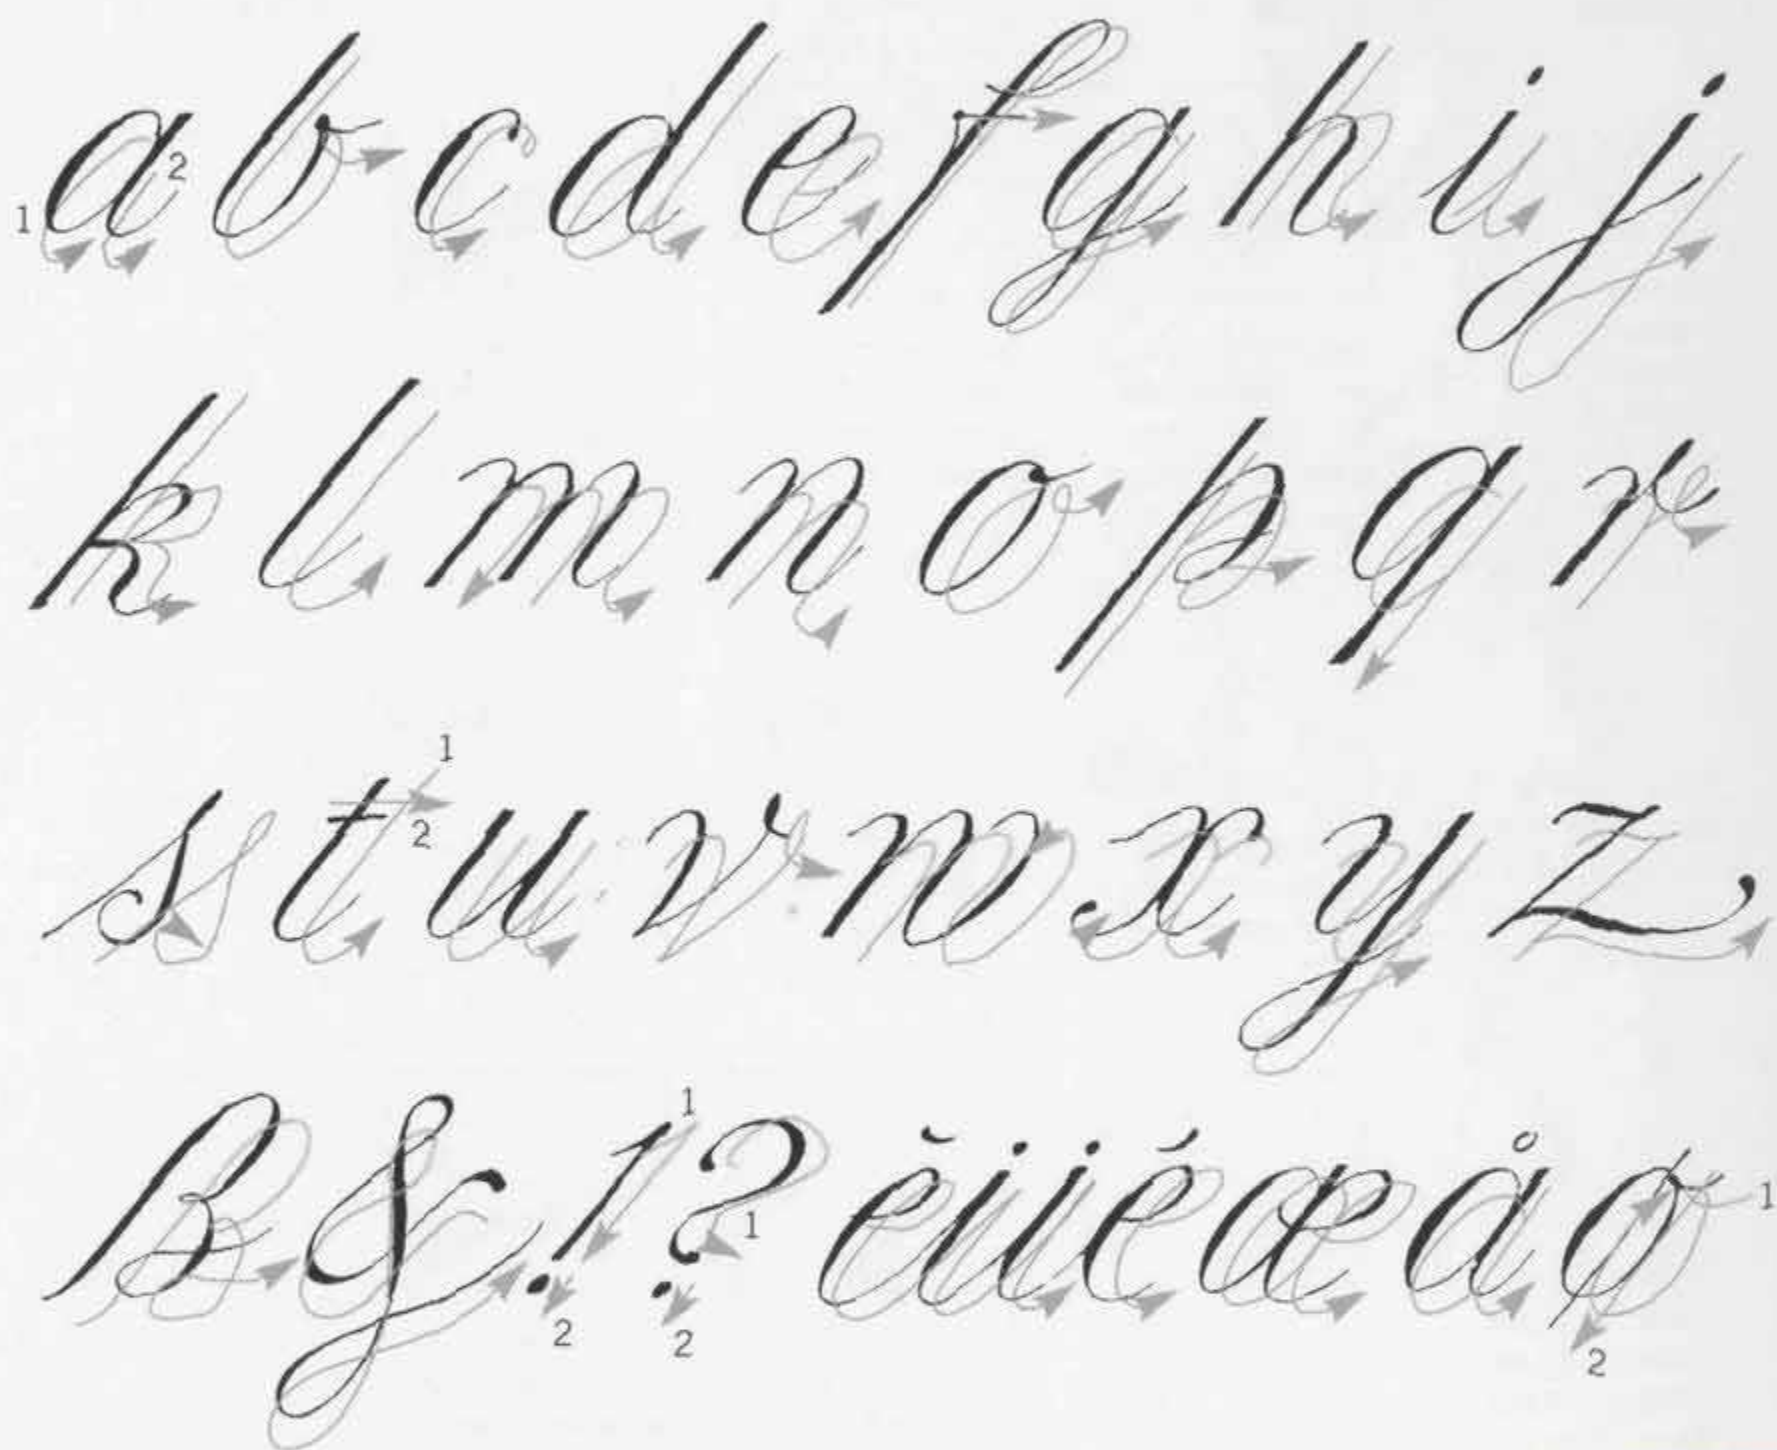 1 a 2 b c d e f g h i j
k l m n o p q r
s t 1 2 u v w x y z
ß & ! 1 2 ? 1 2 è ü é æ å ø 1 2